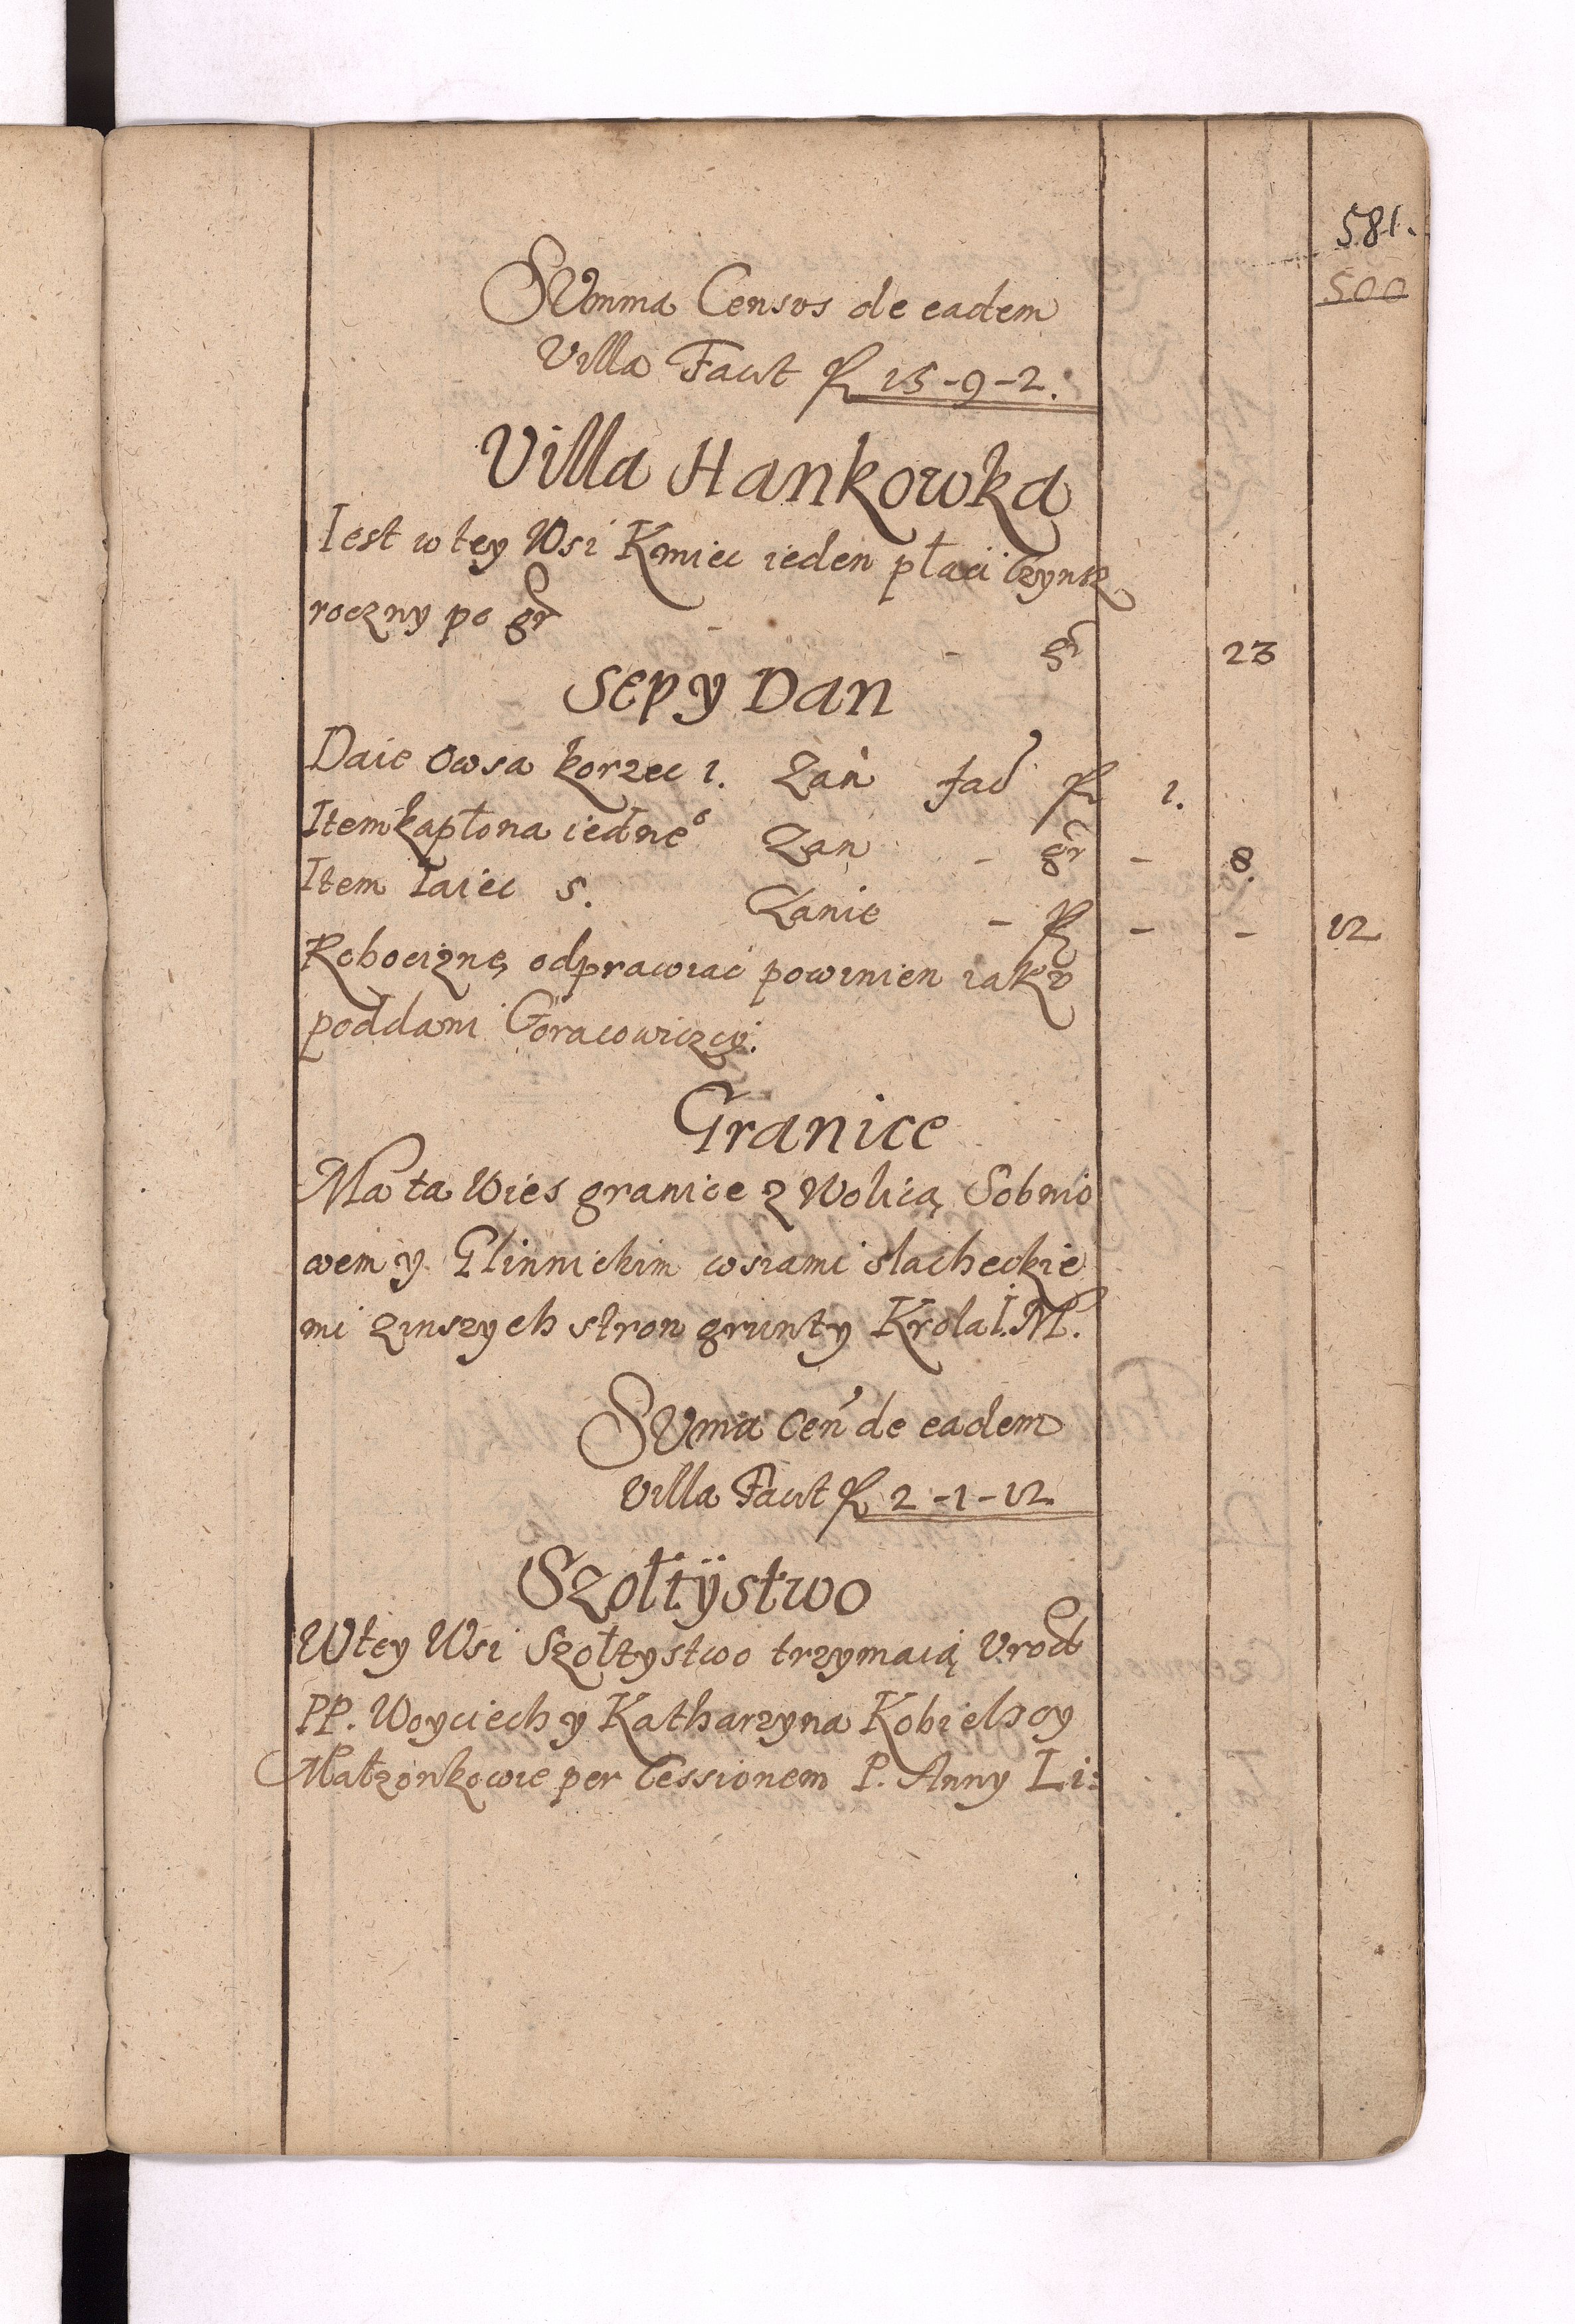 581.
500
SVmma Censvs de eadem
Villa Facit fl 15-9-2.
Villa Hankowka
Iest w tey Wsi Kmiec ieden płaci Czynsz
roczny po gr - - gr 23
Sepy Dan
Daie Owsa korzec 1. Zań fac fl 1.
Item kapłona iedneº Zan - gr - 8.
Item Iaiec 5. Zanie - - - 12
Robociznę odprawiac powinien iako
poddani Goracowiczcy.
Granice
Ma ta Wies granice z Wolicą Sobnio
wem y Glinnickim wsiami slacheckie
mi zinszych stron grunty Krola I. M.
SVma Cen de eadem
Villa Facit fl 2-1-12
Szołtÿstwo
Wtey Wsi Szołtystwo trzymaią Vrod
PP. Woyciech y Katharzyna Kobielscy
Małzonkowie per Cessionem P. Anny Li: